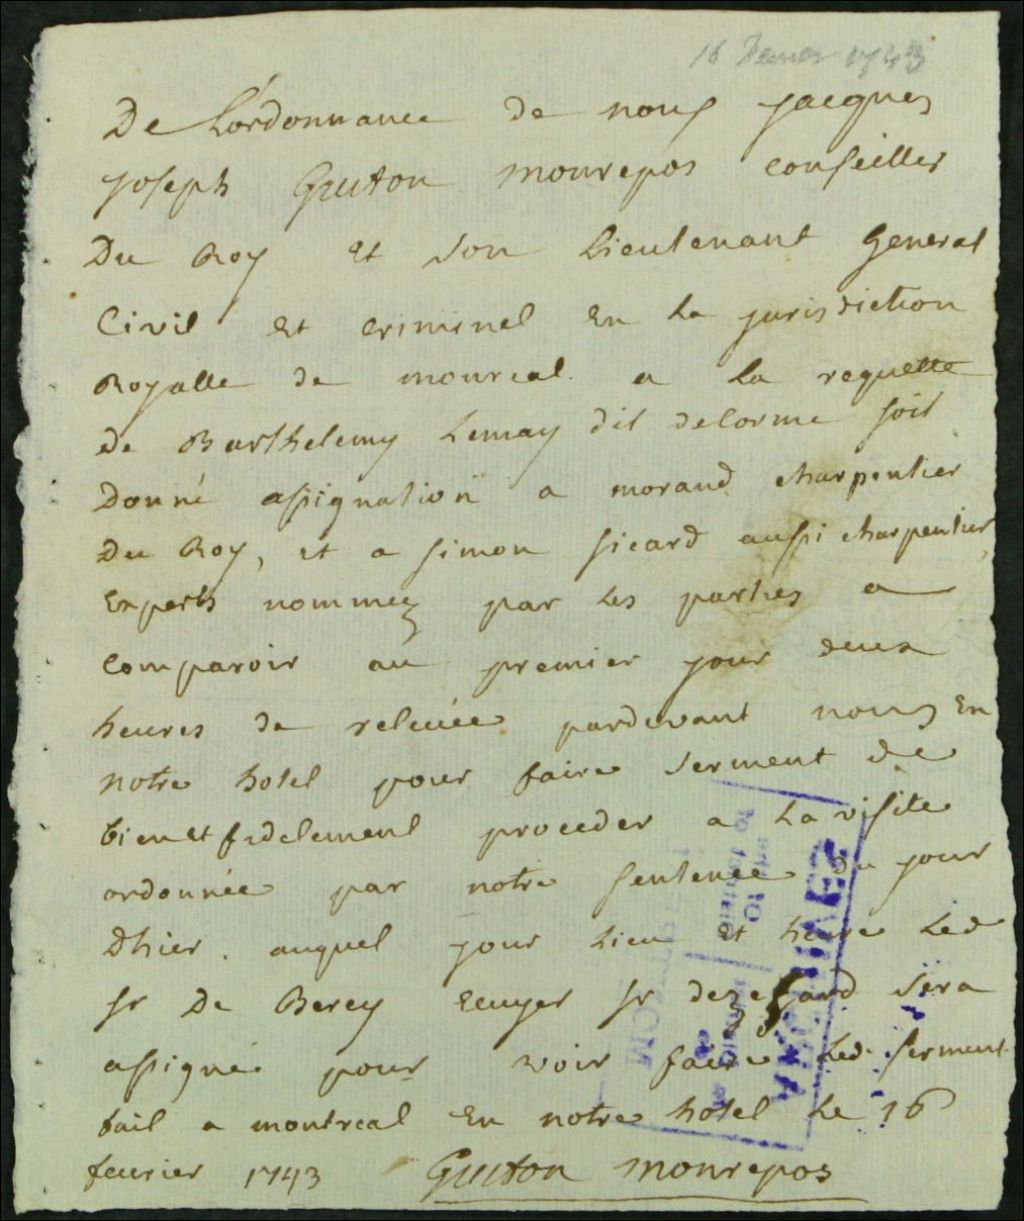 16 Fevrier 1743
De L'ordonnance de nous jacques
joseph Guiton monrepos conseiller
Du Roy et son Lieutenant General
Civil et criminel en La jurisdiction
Royalle de monreal a La requette
de Barthelemy Lemay dit delorme soit
Donné assignation a morand charpentier
Du Roy, et a simon sicard aussi charpentier
Experts nommez par Les parties a
comparoir au premier jour deux
heures de relevée pardevant nous En
notre hotel pour faire serment de
bien et fidelement proceder a La visite
ordonnée par notre sentence du jour
Dhier. auquel jour Lieu et heure Led
sr De Berey Ecuyer sr des Essard sera
assigné pour voir faire Led. serment
fait a montreal En notre hotel Le 16
fevrier 1743 Guiton monrepos
ARCHIVES